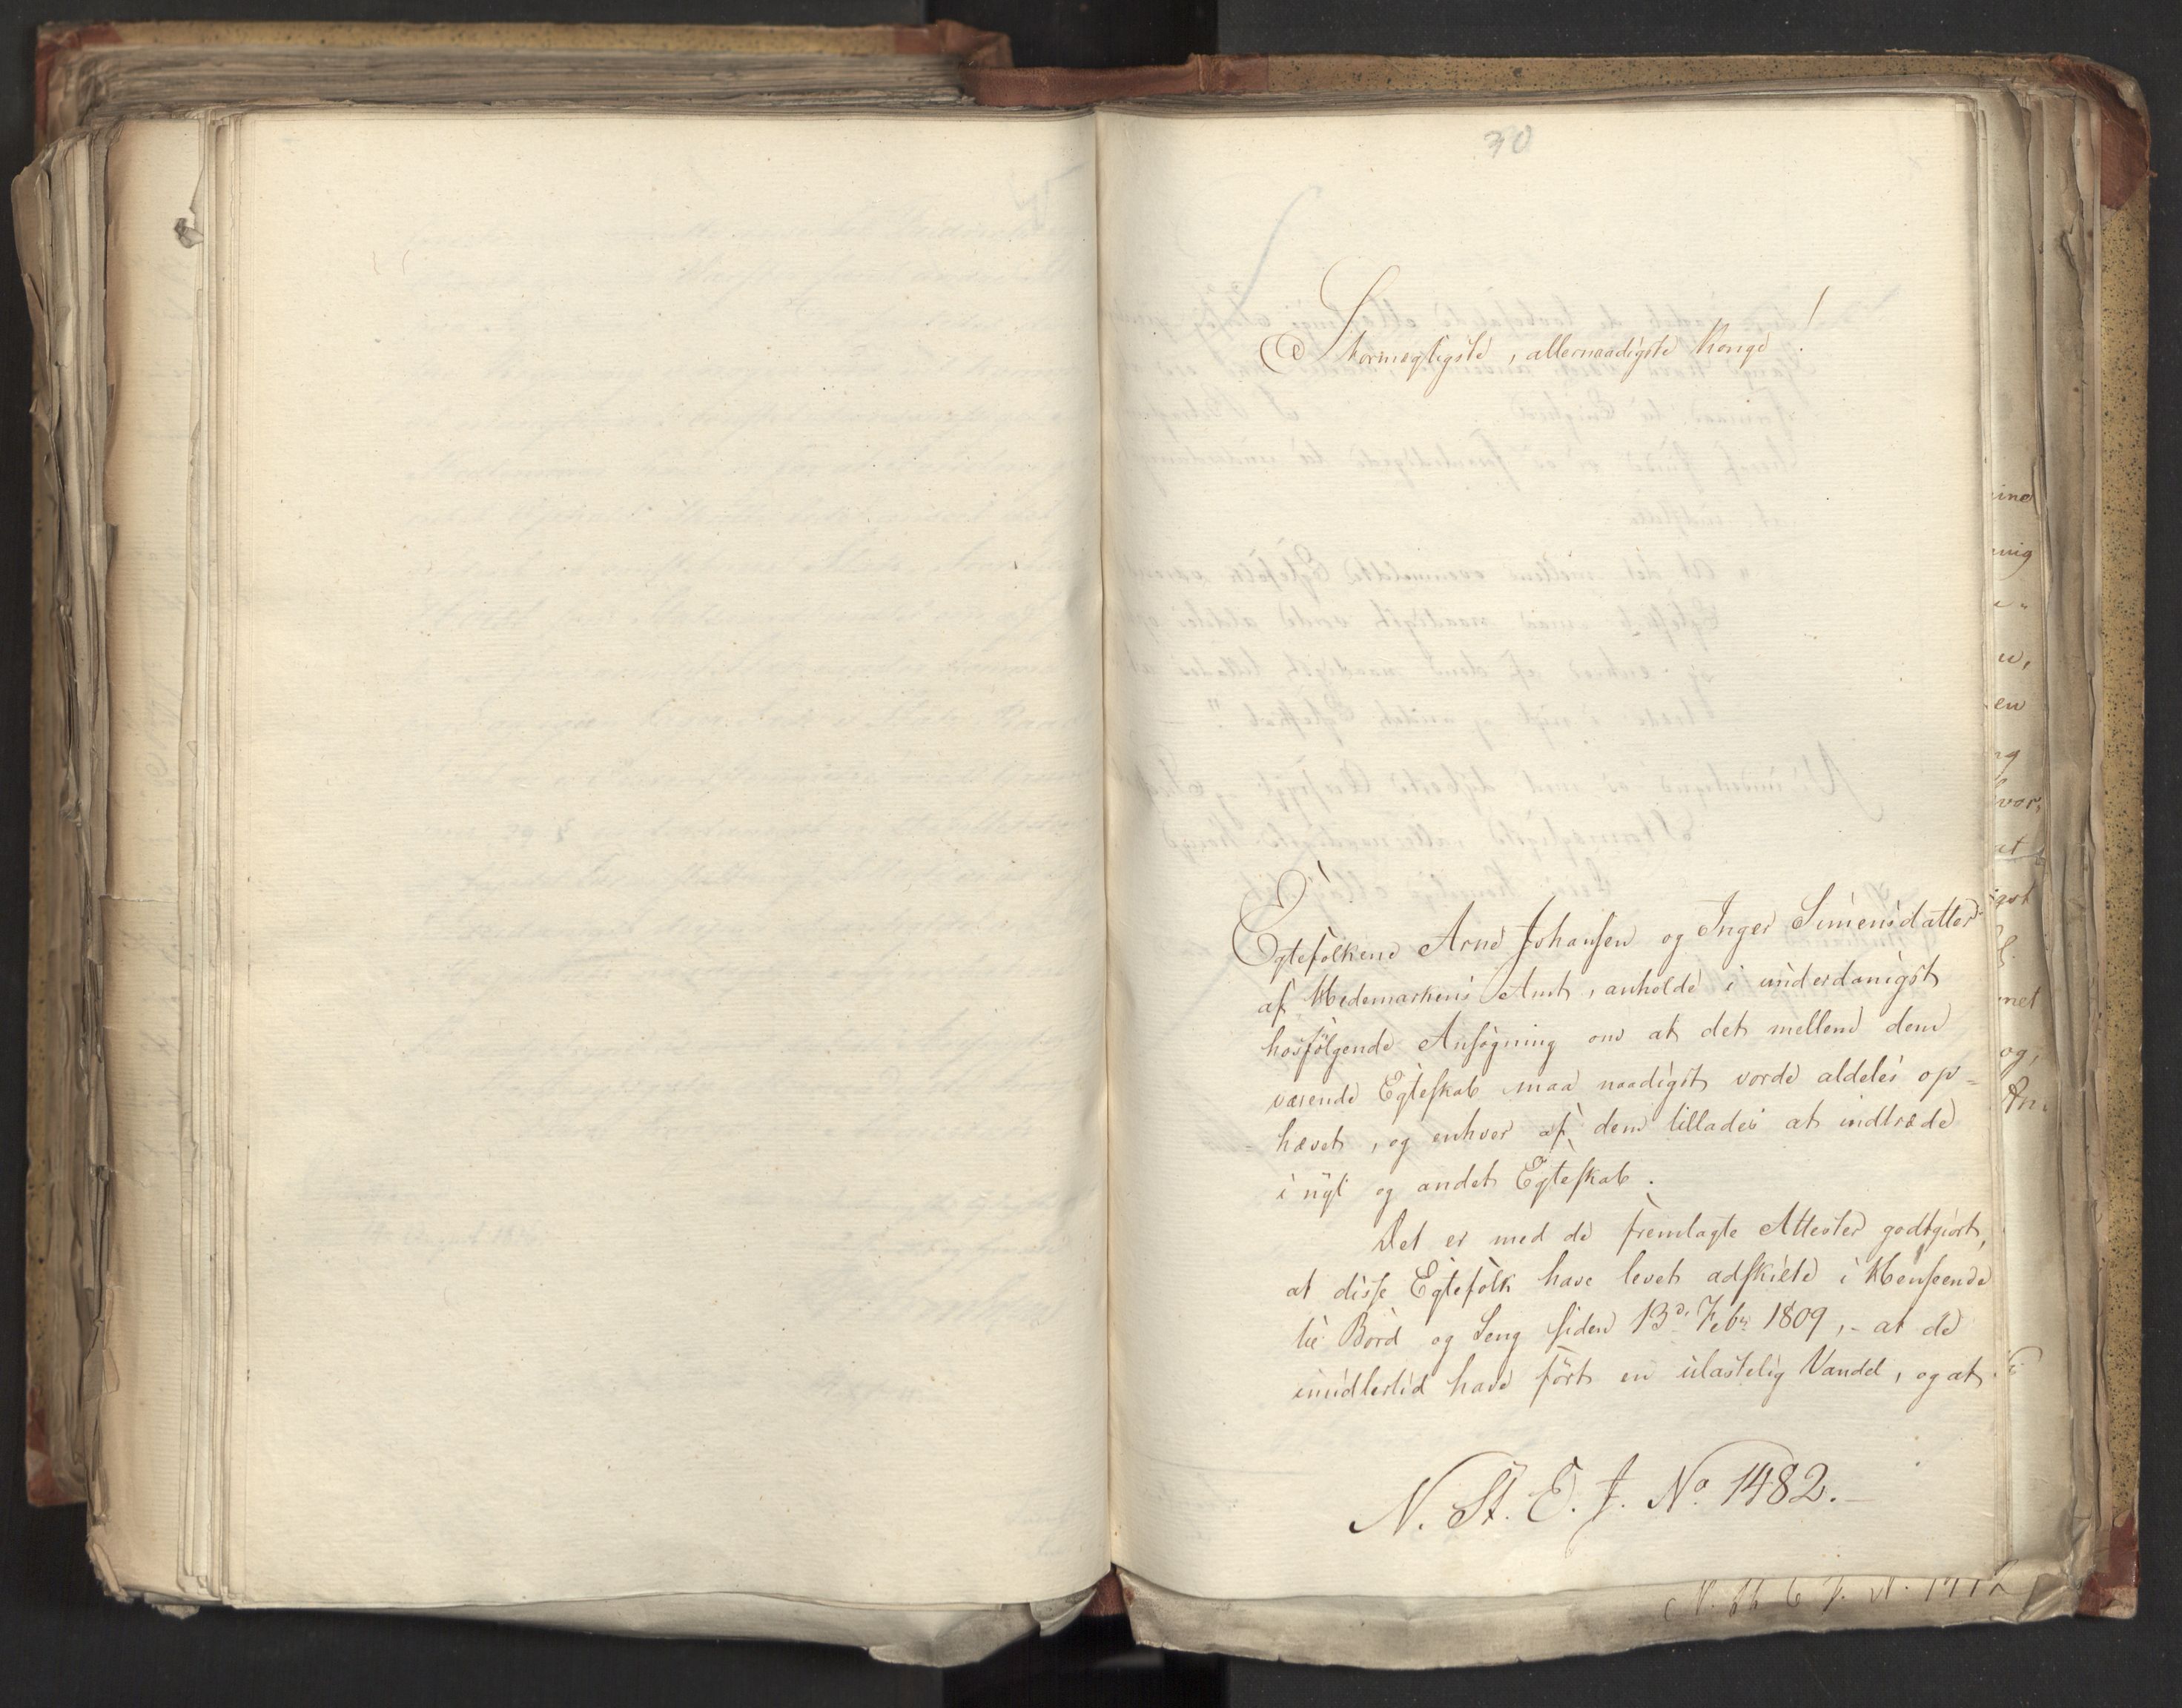 30
Stormægtigste, allernaadigste Konge!
Egtefolkene Arne Johansen og Inger Simensdatter
af Hedemarkens Amt, anholde i underdanigst
hosfølgende Ansøgning om at det mellem dem
værende Egteskab maa naadigst vorde aldeles op=
hævet, og enhver af dem tillades at indtræde
i nyt og andet Egteskab.
Det er med de fremlagte Attester godtgiort,
at disse Egtefolk have levet adskilte i Henseende
til Bord og Seng siden 13de Febr 1809, - at de
imidlertid have ført en ulastelig Vandel, og at
N. St. E. J. No. 1482.-